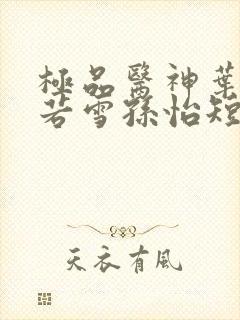 極品醫神葉
若雪孫怡短
天衣有風